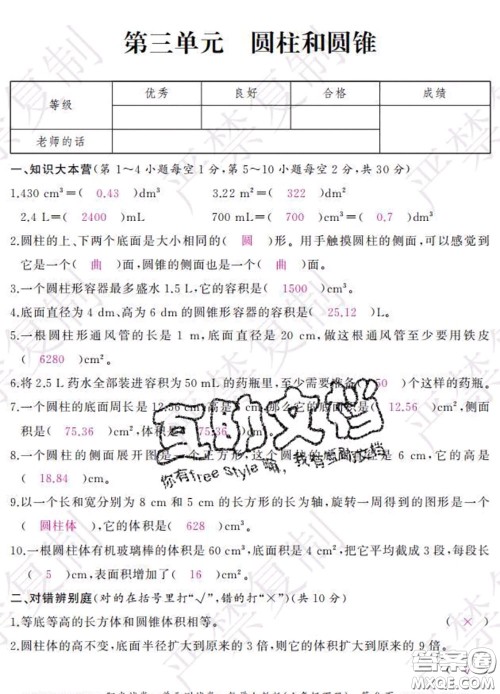 第三单元 圆柱和圆锥
等级 优秀 良好 合格 成绩
老师的话
一、知识大本营(第1~4小题每空1分,第5~10小题每空2分,共30分)
1.430 cm³=( 0.43 )dm³ 3.22 m²=( 322 )dm²
2.4 L=( 2400 )mL 700 mL=( 700 )cm³=( 0.7 )dm³
2.圆柱的上、下两个底面是大小相同的( 圆 )形。用手触摸圆柱的侧面,可以感觉到
它是一个( 曲 )面,圆锥的侧面也是一个( 曲 )面。
3.一个圆柱形容器最多盛水1.5 L,它的容积是( 1500 )cm³。
4.底面直径为4 dm、高为6 dm的圆锥形容器的容积是( 25.12 )L。
5.一根圆柱形通风管的长是1 m,底面直径是20 cm,做这根通风管至少要用铁皮
( 6280 )cm²。
6.将2.5 L药水全部装进容积为50 mL的药瓶里,至少需要准备( 50 )个这样的药瓶。
7.一个圆柱的底面周长是12.56 cm,高是 那么它的底面积是( 12.56 )cm²,侧面
积是( 75.36 )cm²,体积是( 75.36
8.一个圆柱的侧面展开图是一个正方形,这个圆柱的 是6 cm,它的高是
( 18.84 )cm。
9.以一个长和宽分别为8 cm和5 cm的长方形的长为轴,旋转一周得到的图形是一个
( 圆柱体 ),它的体积是( 628 )cm³。
10.一根圆柱体有机玻璃棒的体积是60 cm³,底面积是4 cm²,把它平均截成3段,每段长
( 5 )cm,表面积增加了( 16 )cm²。
二、对错辨别庭(对的在括号里打“√”,错的打“×”)(共10分)
1.等底等高的长方体和圆锥体积相等。 ( × )
2.圆柱体的高不变,底面半径扩大到原来的3倍,则它的体积扩大到原来的9倍。
严禁复制
互助文档
你有free Style嘛,我有互助文档